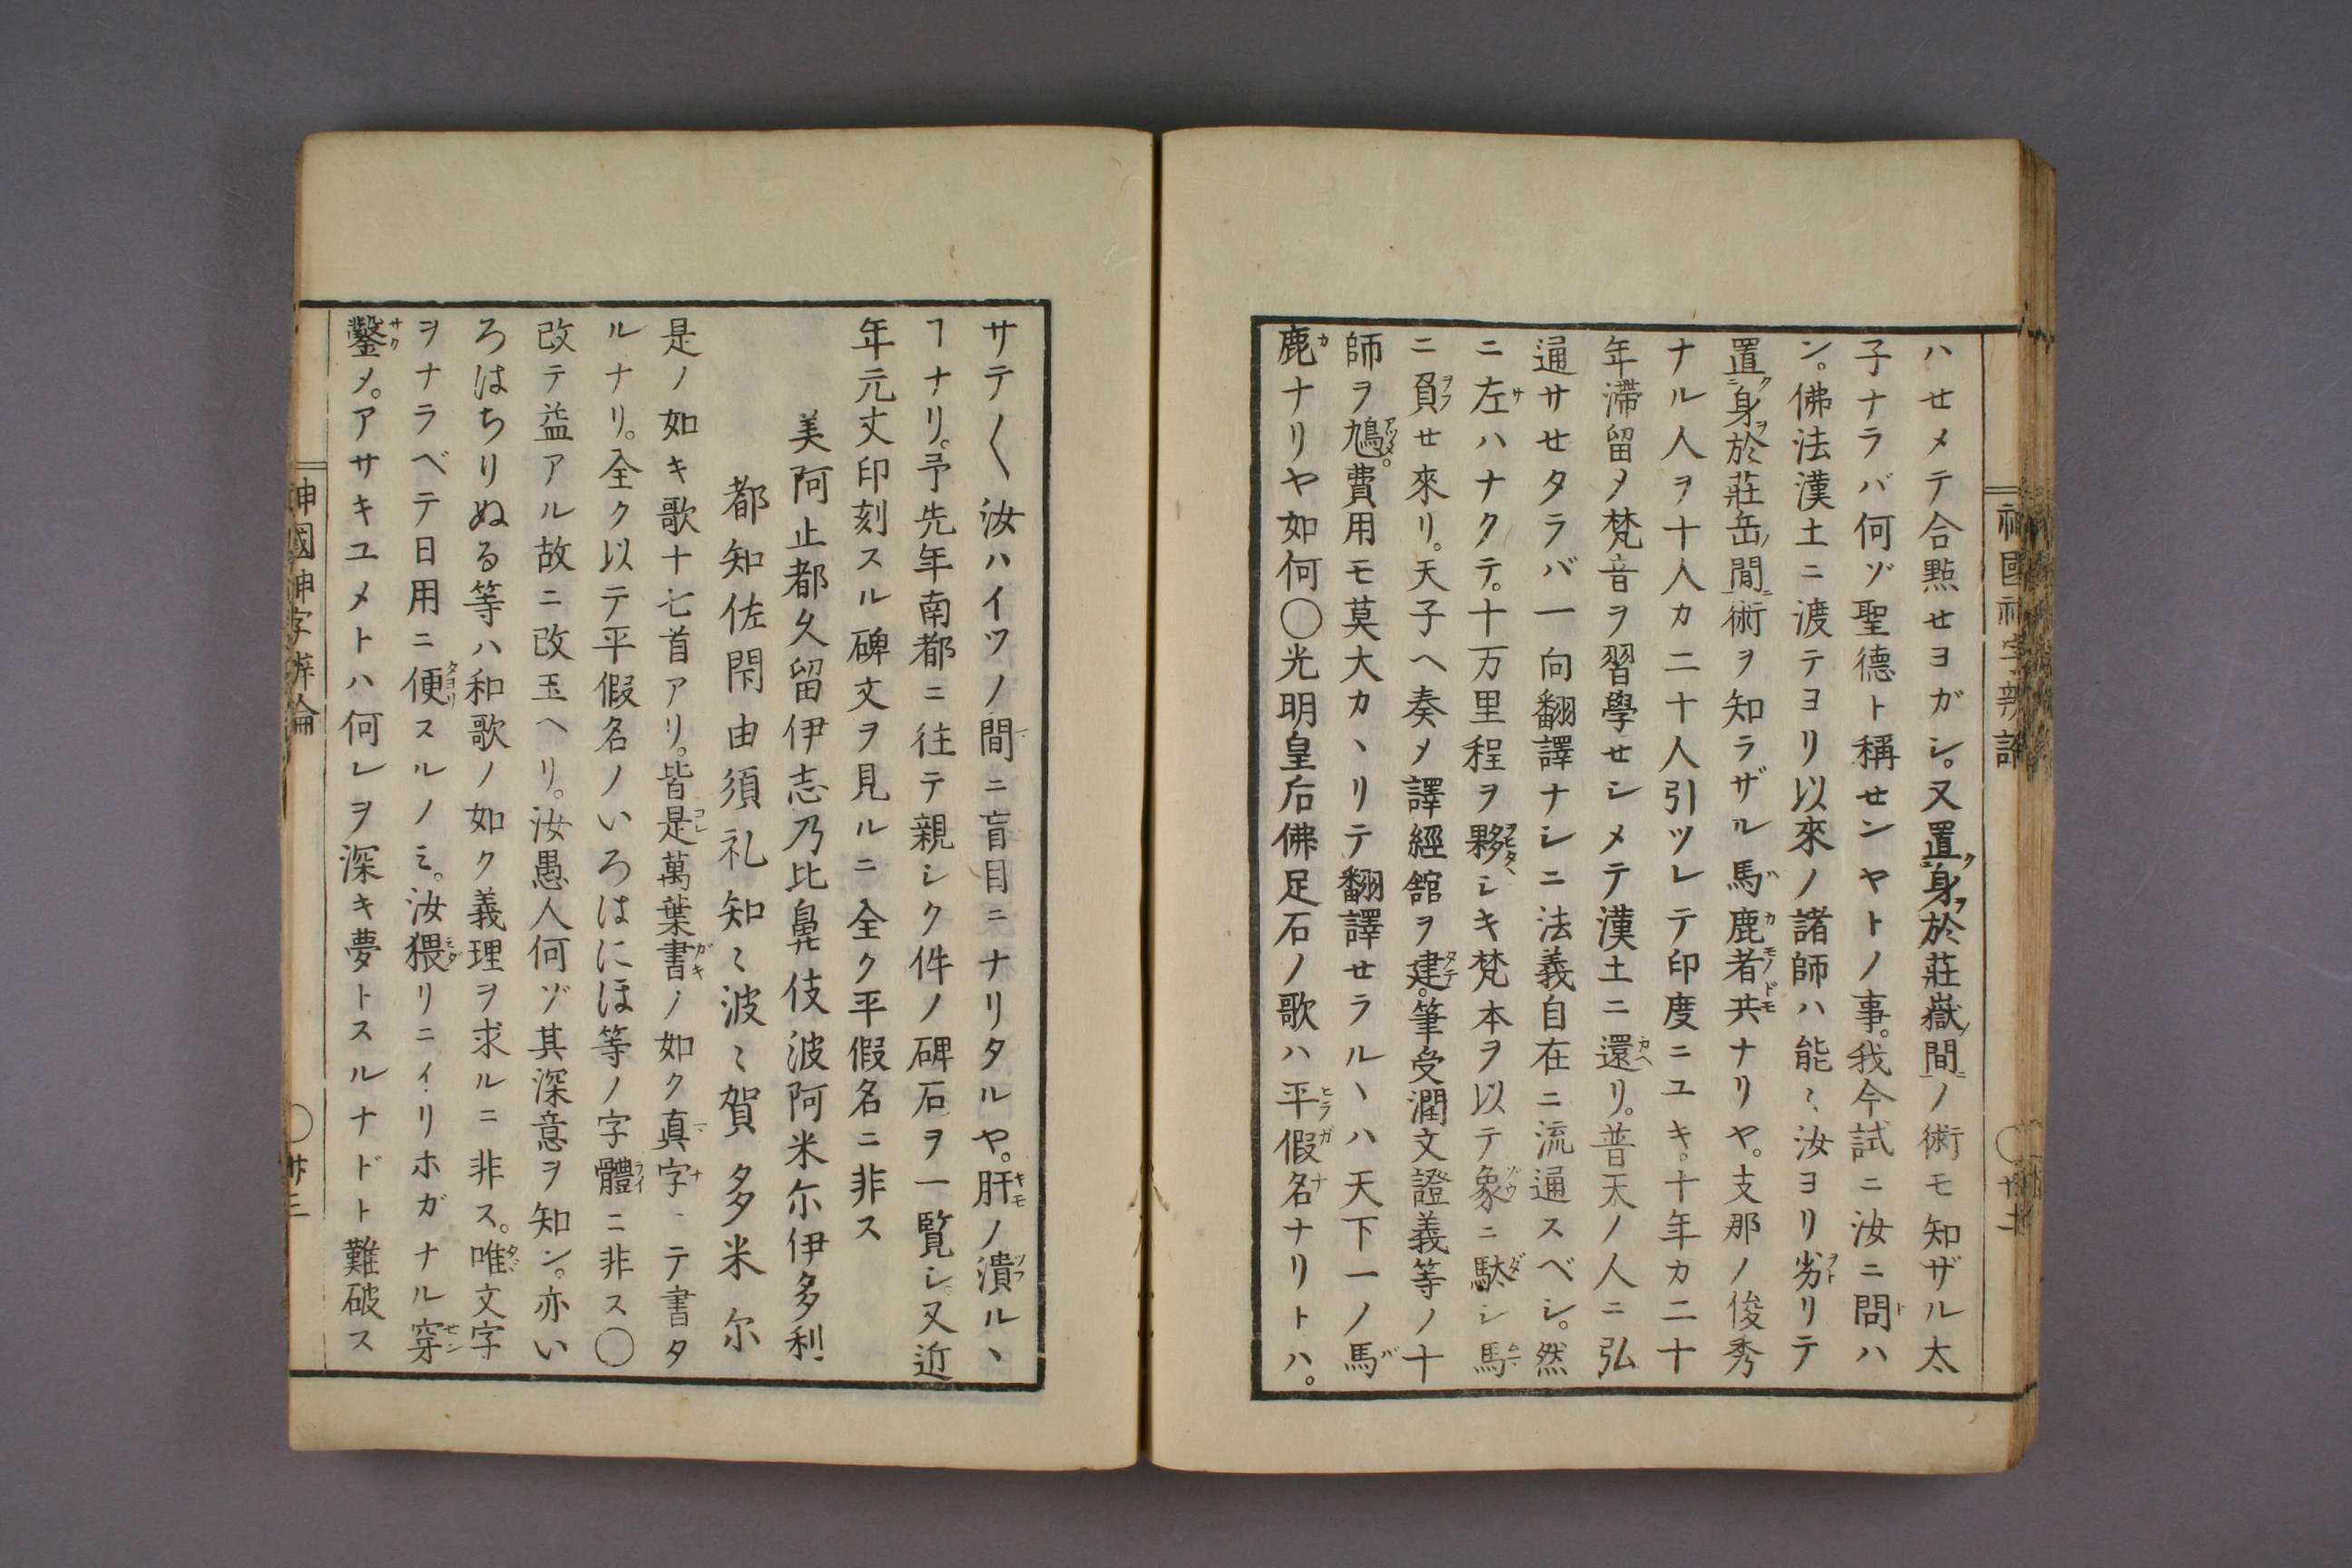 ハセメテ合點セヨガシ。又置身於莊嶽間ノ術モ知ザル太
子ナラバ何ゾ聖德ト稱センヤトノ事。我今試ニ汝ニ問ハ
ン。佛法漢土ニ渡テヨリ以來ノ諸師ハ能〻汝ヨリ劣リテ
置身於莊岳間術ヲ知ラザル馬鹿者共ナリヤ。支那ノ俊秀
ナル人ヲ十人カ二十人引ツレテ印度ニユキ。十年カ二十
年滯留〆梵音ヲ習學セシメテ漢土ニ還リ。普天ノ人ニ弘
通サセタラバ一向翻譯ナシニ法義自在ニ流通スベシ。然
ニ左ハナクテ。十万里程ヲ夥シキ梵本ヲ以テ象ニ駄シ馬
ニ負セ來リ。天子ヘ奏〆譯經舘ヲ建。筆受潤文證義等ノ十
師ヲ鳩。費用モ莫大カヽリテ翻譯セラルヽハ天下一ノ馬
鹿ナリヤ如何〇光明皇后佛足石ノ歌ハ平假名ナリトハ。
神國神字辨論
〇廿二
サテ〱汝ハイツノ間ニ盲目ニナリタルヤ。肝ノ潰ルヽ
ヿナリ。予先年南都ニ往テ親シク件ノ碑石ヲ一覧シ。又近
年元丈印刻スル碑文ヲ見ルニ全ク平假名ニ非ス
美阿止都久留伊志乃比鼻伎波阿米尓伊多利
都知佐閇由須礼知〻波〻賀多米尓
是ノ如キ歌十七首アリ。皆是萬葉書ノ如ク真字ニテ書タ
ルナリ。全ク以テ平假名ノいろはにほ等ノ字體ニ非ス〇
改テ益アル故ニ改玉ヘリ。汝愚人何ゾ其深意ヲ知ン。亦い
ろはちりぬる等ハ和歌ノ如ク義理ヲ求ルニ非ス。唯文字
ヲナラベテ日用ニ便スルノミ。汝猥リニイリホガナル穿
鑿〆。アサキユメトハ何レヲ深キ夢トスルナドト難破ス
神國神字辨論
〇廿三